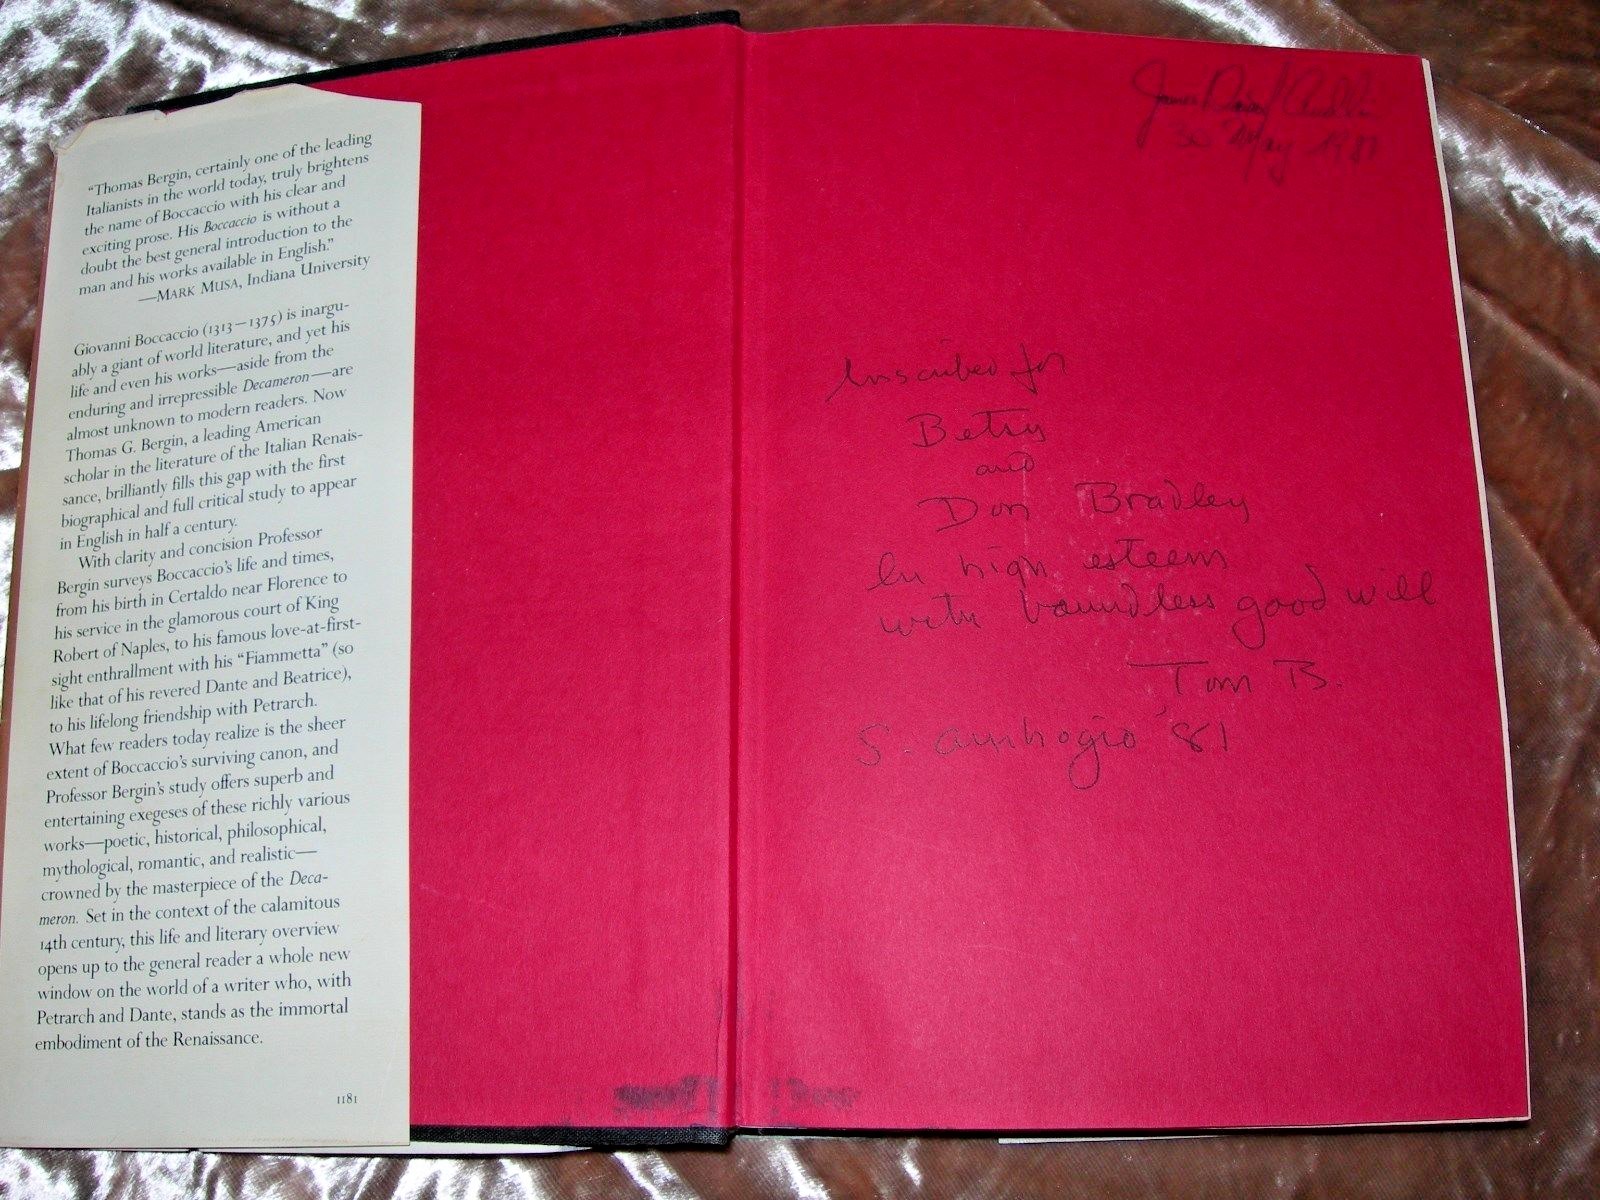 “Thomas Bergin, certainly one of the leading
Italianists in the world today, truly brightens
the name of Boccaccio with his clear and
exciting prose. His Boccaccio is without a
doubt the best general introduction to the
man and his works available in English.”
—MARK MUSA, Indiana University
Giovanni Boccaccio (1313–1375) is inargu-
ably a giant of world literature, and yet his
life and even his works—aside from the
enduring and irrepressible Decameron—are
almost unknown to modern readers. Now
Thomas G. Bergin, a leading American
scholar in the literature of the Italian Renais-
sance, brilliantly fills this gap with the first
biographical and full critical study to appear
in English in half a century.
With clarity and concision Professor
Bergin surveys Boccaccio’s life and times,
from his birth in Certaldo near Florence to
his service in the glamorous court of King
Robert of Naples, to his famous love-at-first-
sight enthrallment with his “Fiammetta” (so
like that of his revered Dante and Beatrice),
to his lifelong friendship with Petrarch.
What few readers today realize is the sheer
extent of Boccaccio’s surviving canon, and
Professor Bergin’s study offers superb and
entertaining exegeses of these richly various
works—poetic, historical, philosophical,
mythological, romantic, and realistic—
crowned by the masterpiece of the Deca-
meron. Set in the context of the calamitous
14th century, this life and literary overview
opens up to the general reader a whole new
window on the world of a writer who, with
Petrarch and Dante, stands as the immortal
embodiment of the Renaissance.
1181
James
30 May
Inscribed for
Betsy
and
Don Bradley
In high esteem
with boundless good will
Tom B.
S. Ambrogio '81